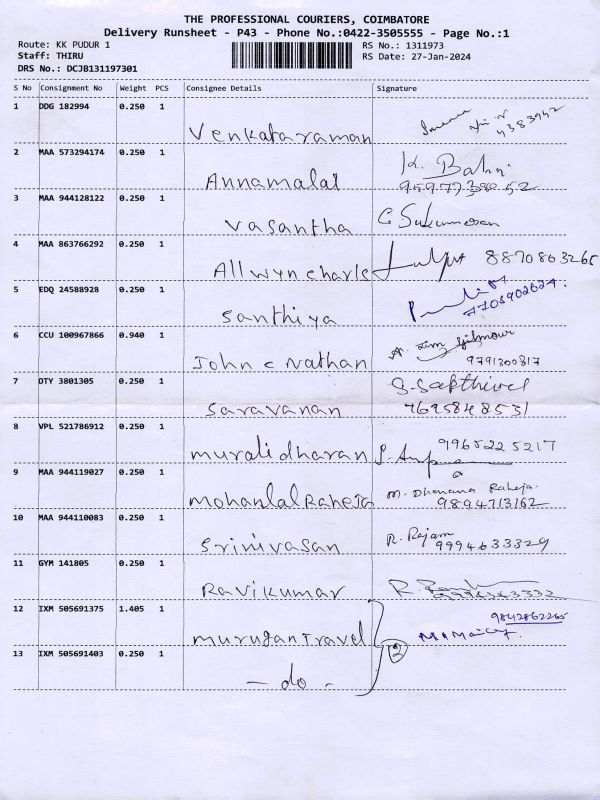 THE PROFESSIONAL COURIERS, COIMBATORE
Delivery Runsheet - P43 - Phone No.:0422-3505555 - Page No.:1
Route: KK PUDUR 1 RS No.: 1311973
Staff: THIRU RS Date: 27-Jan-2024
DRS No.: DCJB131197301
S No Consignment No Weight PCS Consignee Details Signature
1 DDG 182994 0.250 1
Venkataraman 4383942
2 MAA 573294174 0.250 1 K. Babu
Annamalai
3 MAA 944128122 0.250 1
Vasantha C Sukumaran
4 MAA 863766292 0.250 1
Allwyn charls 8870863265
5 EDQ 24588928 0.250 1
Santhiya
6 CCU 100967866 0.940 1
John c Nathan 9791300817
7 OTY 3801305 0.250 1 S. Sakthivel
Saravanan 7695848531
8 VPL 521786912 0.250 1 9965225217
muralidharan
9 MAA 944119027 0.250 1 M. Dhanana Raheja
Mohanlal Raheja 9894713162
10 MAA 944110083 0.250 1 R. Rajam
Srinivasan 9994633329
11 GYM 141805 0.250 1
Ravikumar
12 IXM 505691375 1.405 1 9842862265
murugan Travel
2
13 IXM 505691403 0.250 1
- do -